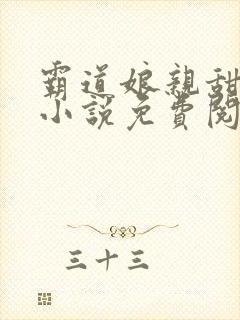 霸道娘親甜
小說免費閱
三十三